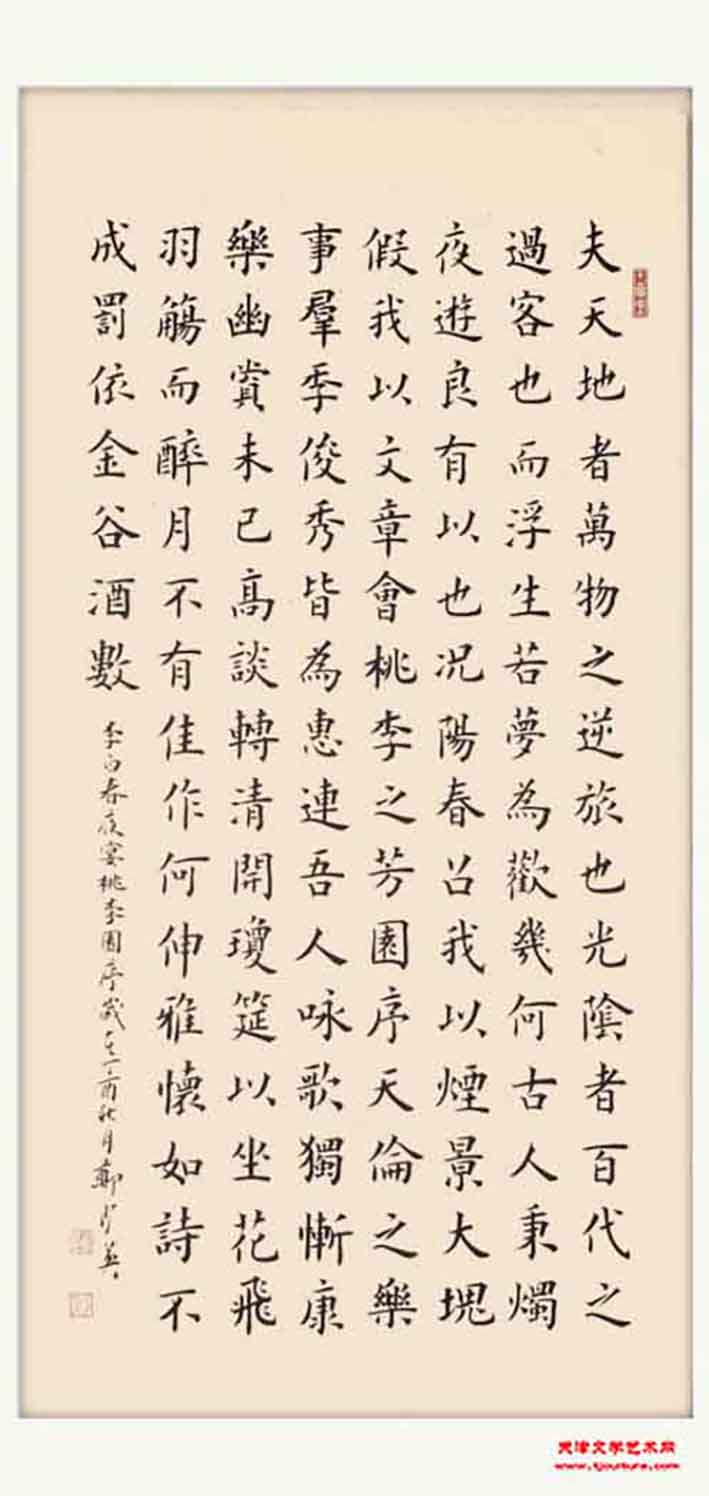 夫天地者萬物之逆旅也光陰者百代之
過客也而浮生若夢為歡幾何古人秉燭
夜遊良有以也況陽春召我以煙景大塊
假我以文章會桃李之芳園序天倫之樂
事羣季俊秀皆為惠連吾人咏歌獨慚康
樂幽賞未已高談轉清開瓊筵以坐花飛
羽觴而醉月不有佳作何伸雅懷如詩不
成罰依金谷酒數
李白春夜宴桃李園序歲在丁酉秋月鄭英
天津文学艺术网